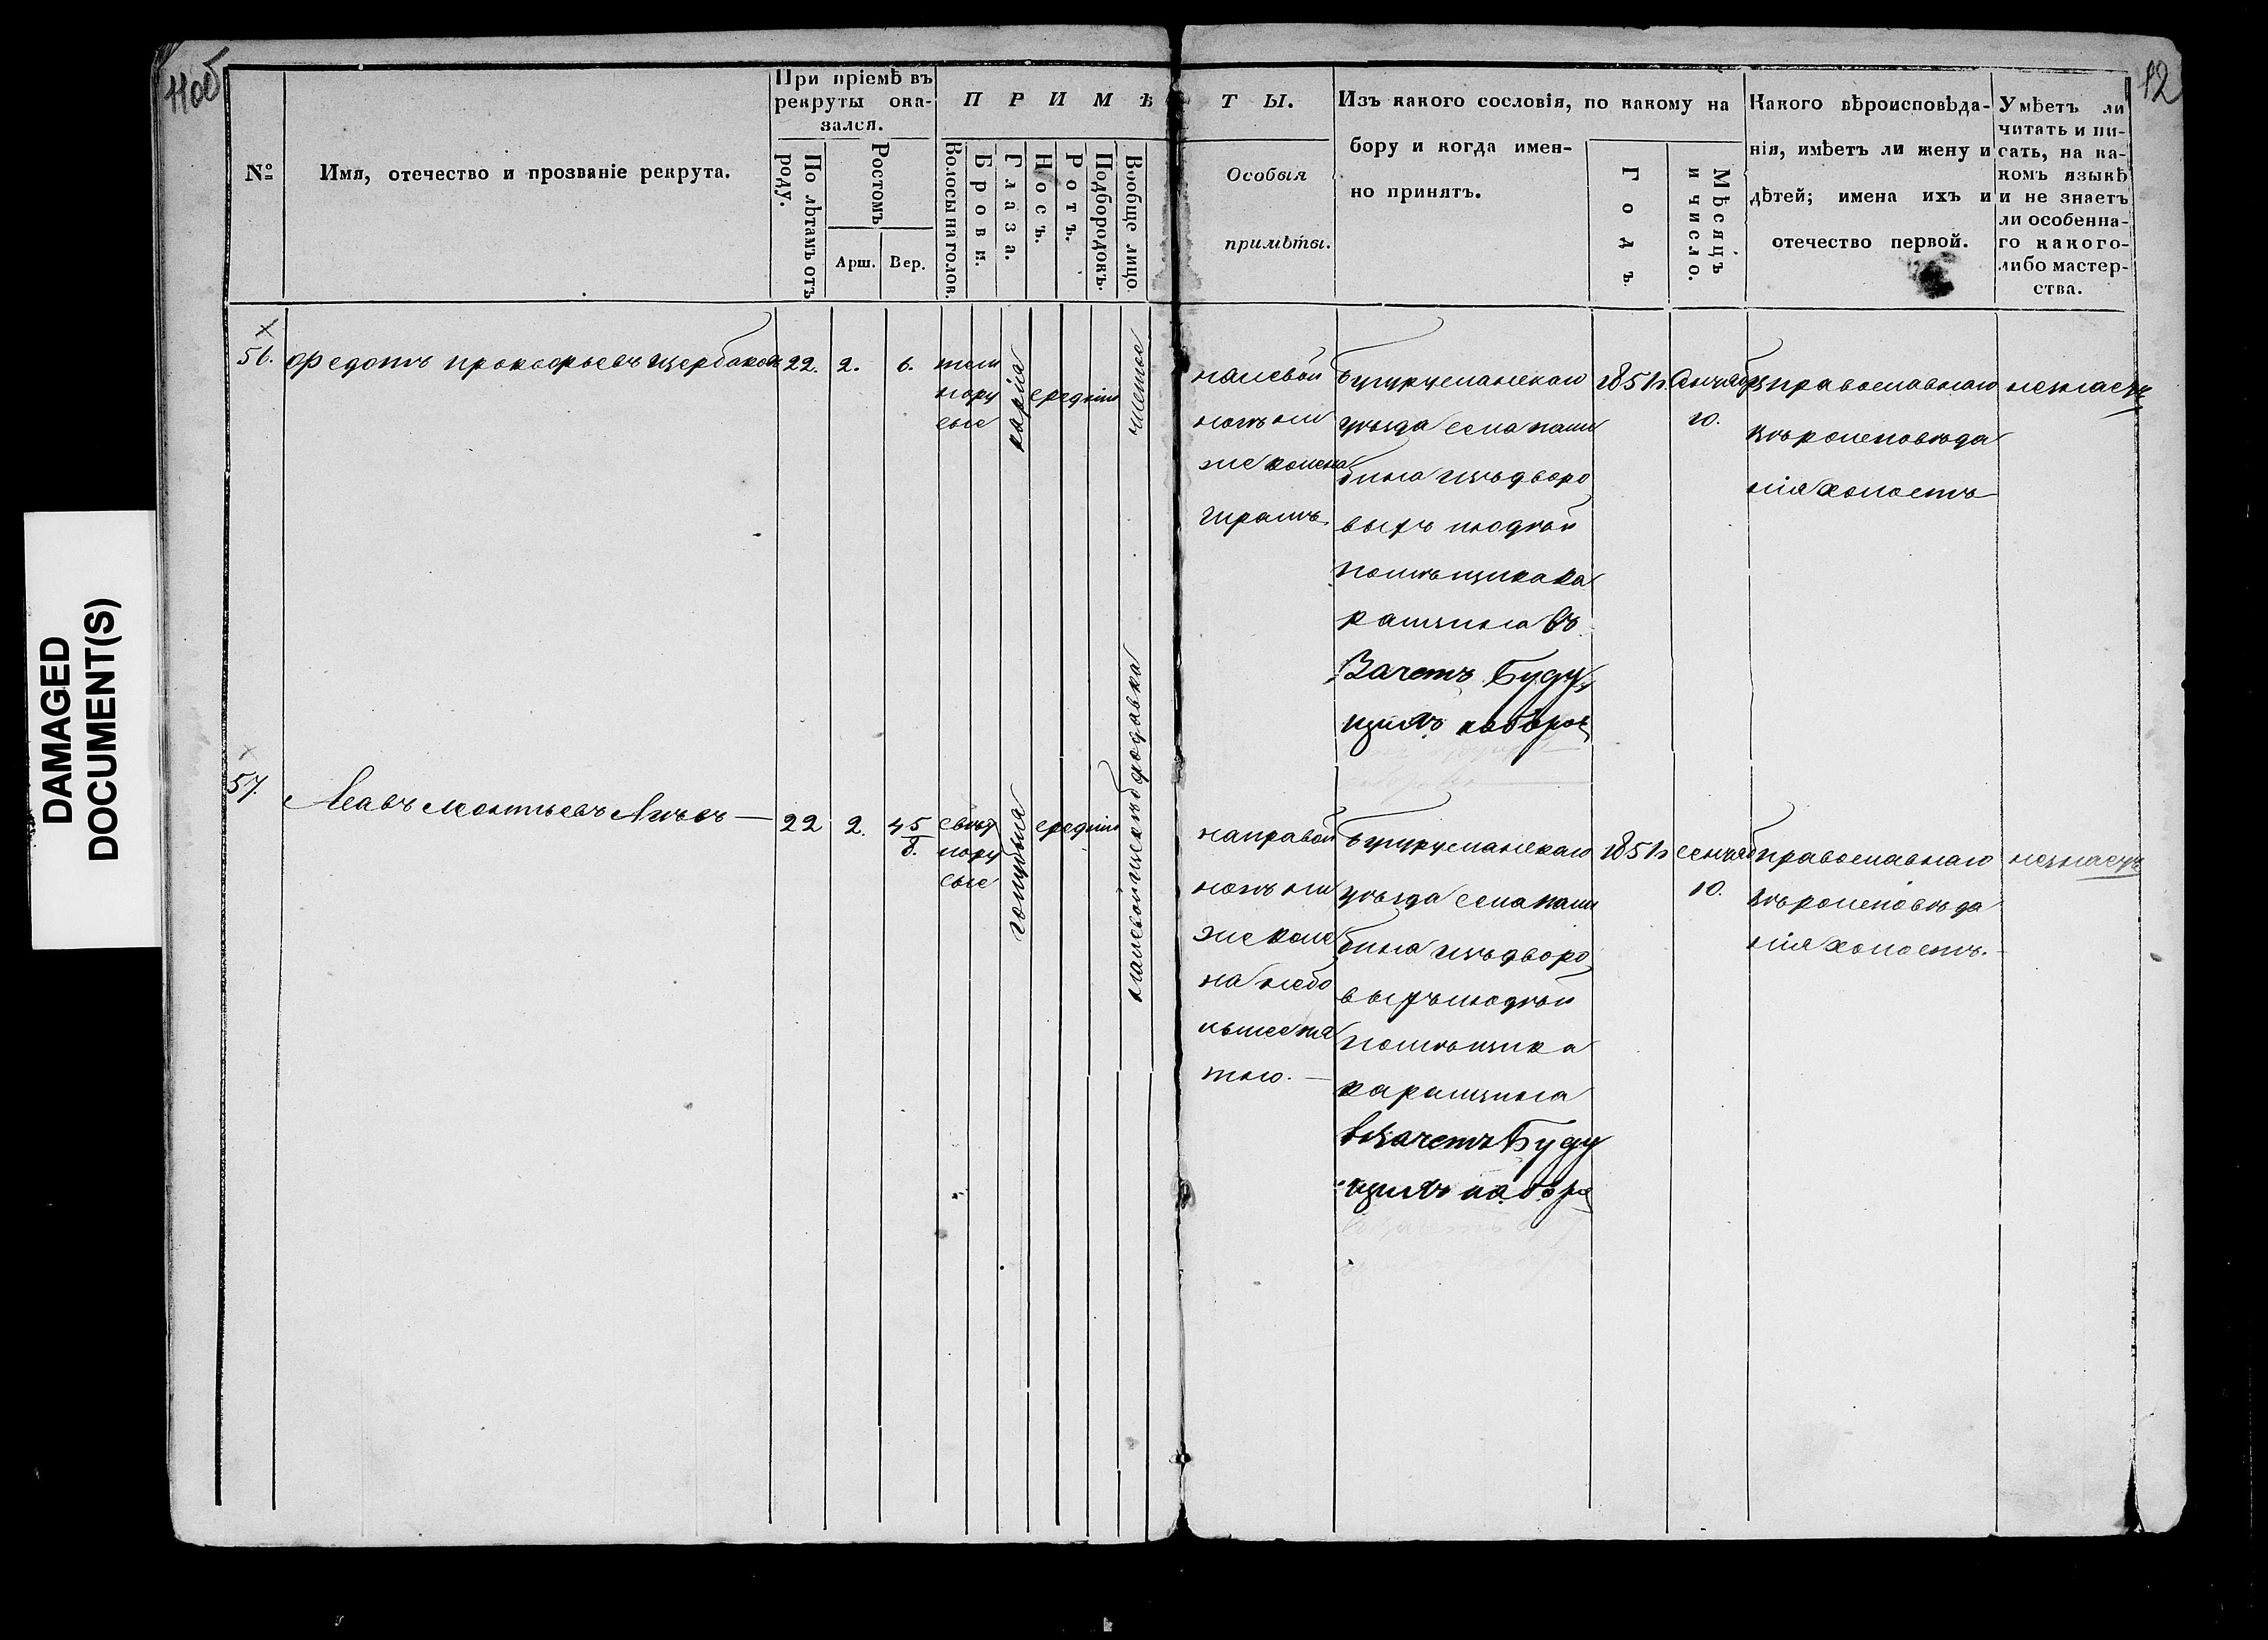 11об
12
DAMAGED
DOCUMENT(S)
№
Имя, отечество и прозваніе рекрута.
При пріемѣ въ
рекруты ока-
зался.
По лѣтамъ отъ
роду.
Ростомъ
Арш.
Вер.
ПРИМѢ
Волосы на голов.
Брови.
Глаза.
Носъ.
Ротъ.
Подбородокъ.
Вообще лицо.
ТЫ.
Особыя
примѣты.
Изъ какого сословія, по какому на
бору и когда имен-
но принятъ.
Годъ.
Мѣсяцъ
и число.
Какого вѣроисповѣда-
нія, имѣетъ ли жену и
дѣтей; имена ихъ и
отечество первой.
Умѣетъ ли
читать и пи-
сать, на ка-
комъ языкѣ
и не знаетъ
ли особенна-
го какого-
либо мастер-
ства.
56.
Федотъ Прокофьевъ Щербаковъ
22.
2.
6.
темн
нору
сые
каріе
средніи
чистое
на левой
ноге ни
же колена
шрамъ.
Бугурусланскаго
уѣзда села
бина изъ дворо
выхъ людей
помѣщика Ка
рамзина въ
Зачетъ Буду
щихъ наборов
185
Сентяб
10.
православнаго
вѣроисповѣда
нія холостъ
незнаетъ
57.
22
2.
4 5/8.
свѣт
лору
сые
голубыя
средніи
на левой щеке бородавка
на правой
ноге ни
же коле
на небо
льшое пя
тно.
Бугурусланскаго
уѣзда села
бина изъ дворо
выхъ людей
помѣщика
Карамзина
въ Зачетъ Буду
щихъ наборо
185
Сентяб
10.
православнаго
вѣроисповѣда
нія холостъ.
незнаетъ